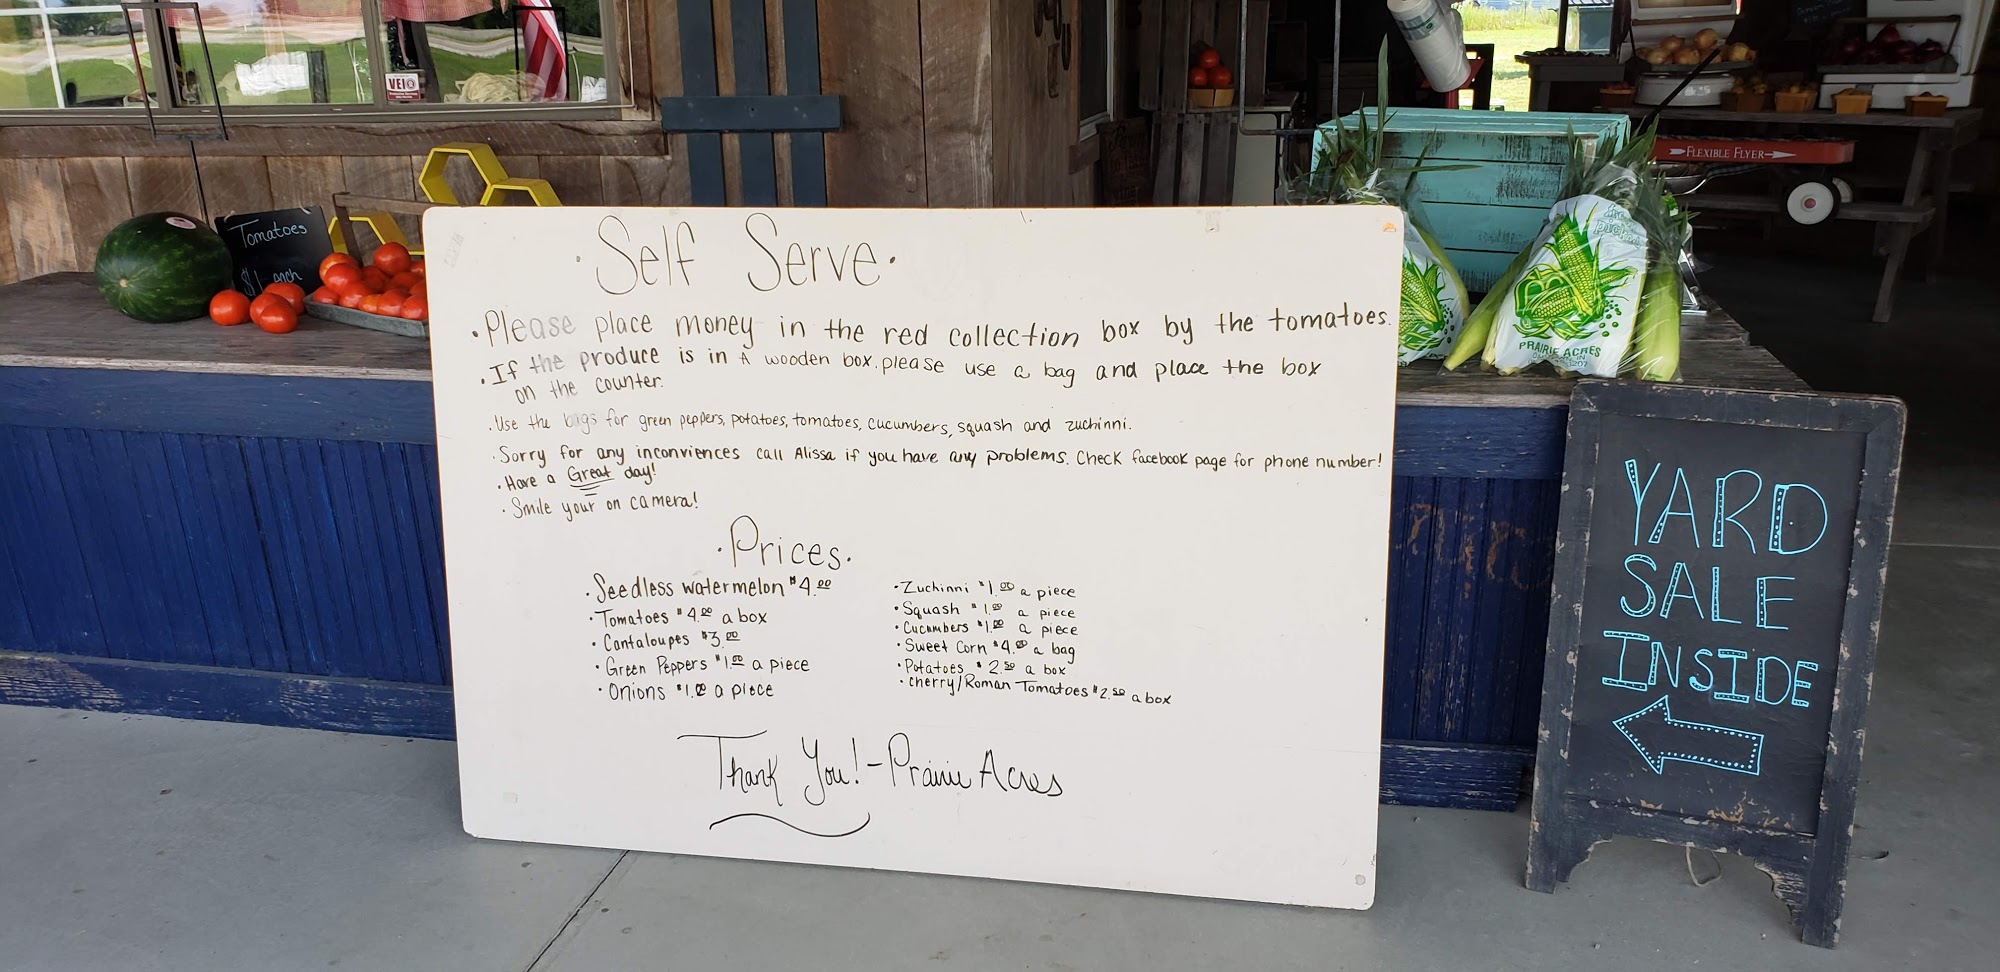 VEI
Tomatoes
$1 each
FLEXIBLE FLYER
PRAIRIE ACRES
· Self Serve ·
· Please place money in the red collection box by the tomatoes.
· If the produce is in A wooden box, please use a bag and place the box
on the counter.
· Use the bags for green peppers, potatoes, tomatoes, cucumbers, squash and zuchinni.
· Sorry for any inconviences call Alissa if you have any problems. Check facebook page for phone number!
· Have a Great day!
· Smile your on camera!
· Prices ·
· Seedless watermelon $4.00
· Tomatoes $4.00 a box
· Cantaloupes $3.00
· Green Peppers $1.00 a piece
· Onions $1.00 a piece
· Zuchinni $1.00 a piece
· Squash $1.00 a piece
· Cucumbers $1.00 a piece
· Sweet Corn $4.00 a bag
· Potatoes $2.50 a box
· Cherry/Roman Tomatoes $2.50 a box
Thank You! - Prairie Acres
YARD
SALE
INSIDE